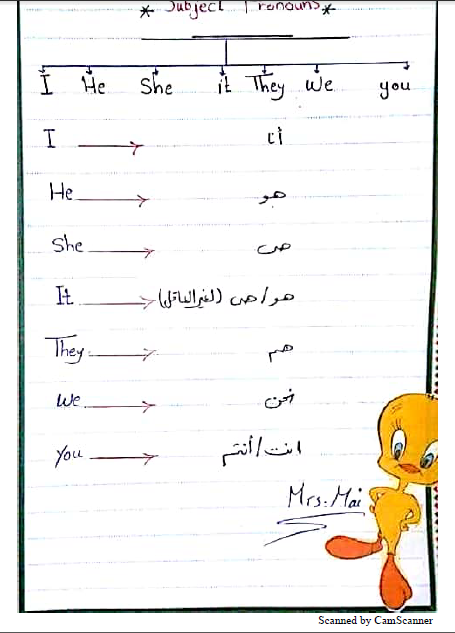 * Subject Pronouns *
I He She it They We you
I → أنا
He → هو
She → هى
It → هو/هى (لغير العاقل)
They → هم
We → نحن
you → انت/أنتم
Mrs. Mai
Scanned by CamScanner